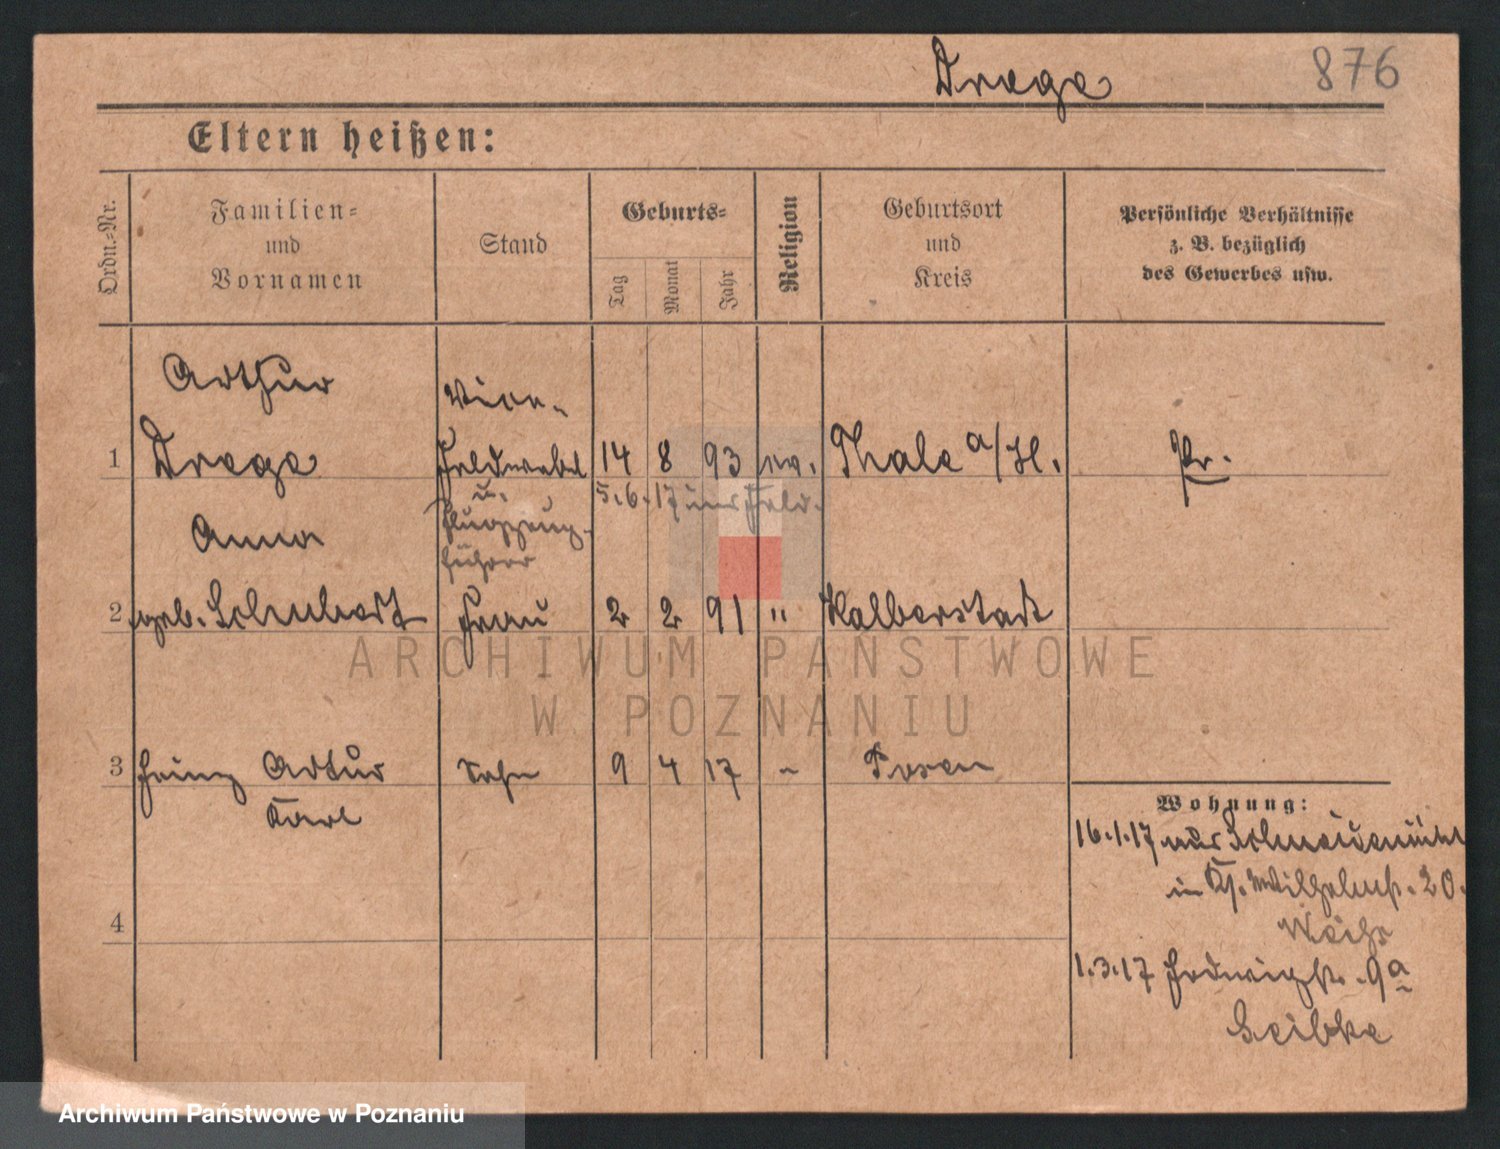 Drege 876
Eltern heißen:
Ordn.-Nr.
Familien-
und
Vornamen
Stand
Geburts-
Tag
Monat
Jahr
Religion
Geburtsort
und
Kreis
Persönliche Verhältnisse
z. B. bezüglich
des Gewerbes usw.
Arthur
Vice-
1 Drege Feldwebel 14 8 93 ev. Thale a/H. Pr.
u. 5.6.17 ins Feld.
Flugzeug-
Anna
führer
2 geb. Schubert Frau 2 2 91 " Halberstadt
3 Heinz Artur Sohn 9 4 17 Posen
Karl
4
Wohnung:
16.1.17 aus Schneidemühl
in Wilhelmstr. 20.
1.3.17 Hedwigstr. 9a
ARCHIWUM PAŃSTWOWE
W POZNANIU
Archiwum Państwowe w Poznaniu